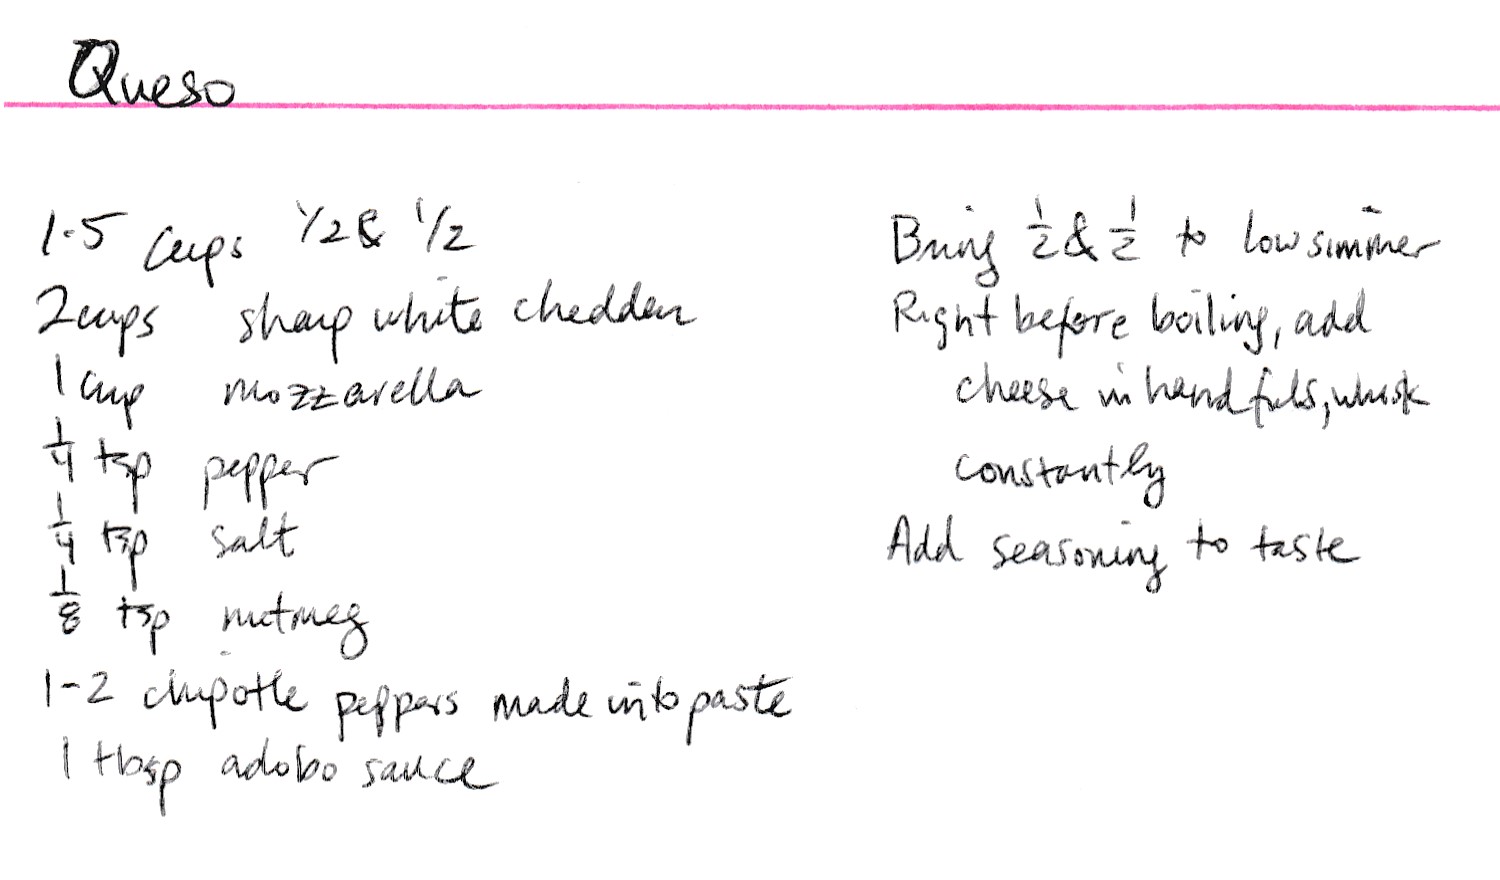 Queso
1.5 cups 1/2 & 1/2
2 cups sharp white cheddar
1 cup mozzarella
1/4 tsp pepper
1/4 tsp salt
1/8 tsp nutmeg
1-2 chipotle peppers made into paste
1 tbsp adobo sauce
Bring 1/2 & 1/2 to low simmer
Right before boiling, add
cheese in handfuls, whisk
constantly
Add seasoning to taste